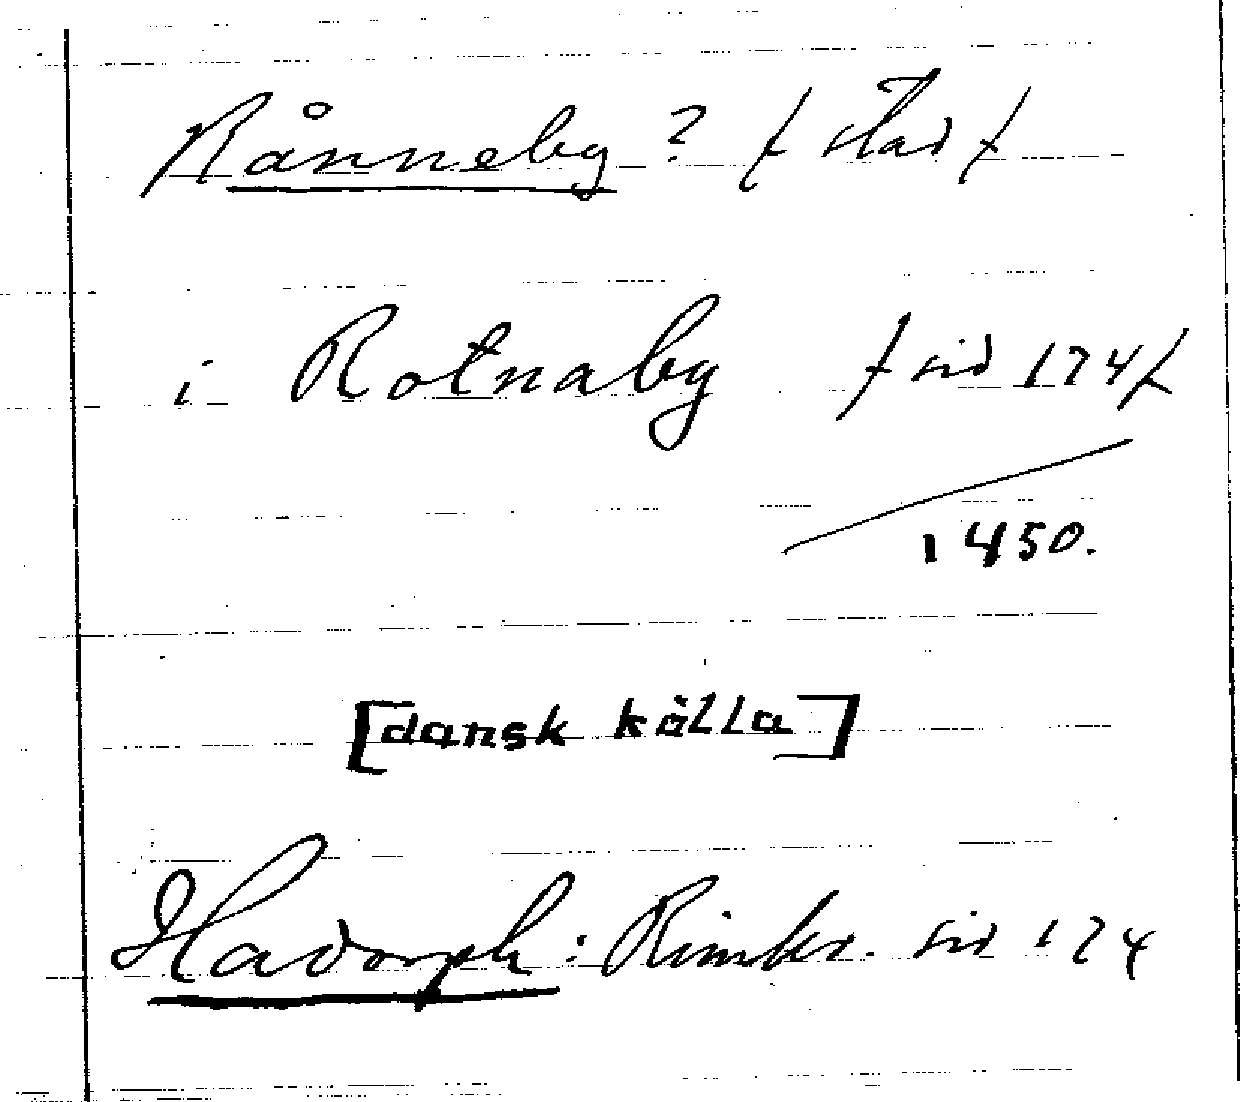 Rånneby ? / stad /
i Rotnaby / sid 174 /
1450.
[dansk källa]
Hadorph : Rimkr. sid 174